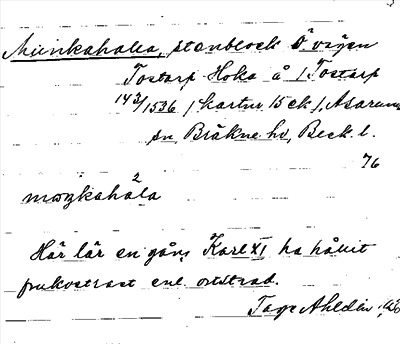 Munkahalla, stenblock Ö vägen
Tostarp Hoka å / Tostarp
143/1536 / kartur 15 ek /, Asarum
sn Bräkne hd, Blek. l.
76
2
Här lär en gång Karl XI ha hållit
frukostrast enl. ortstrad.
Tage Ahldén